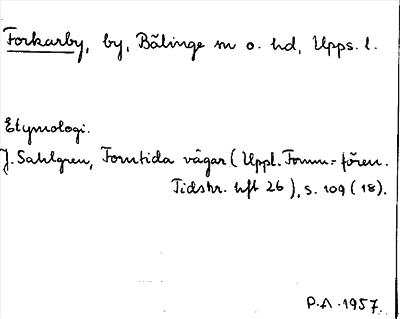 Forkarby, by, Bälinge sn o. hd, Upps. l.
Etymologi.
J. Sahlgren, Forntida vägar (Uppl. Fornm.-fören.
Tidskr. hft 26), s. 109 (18).
P.A. 1957.